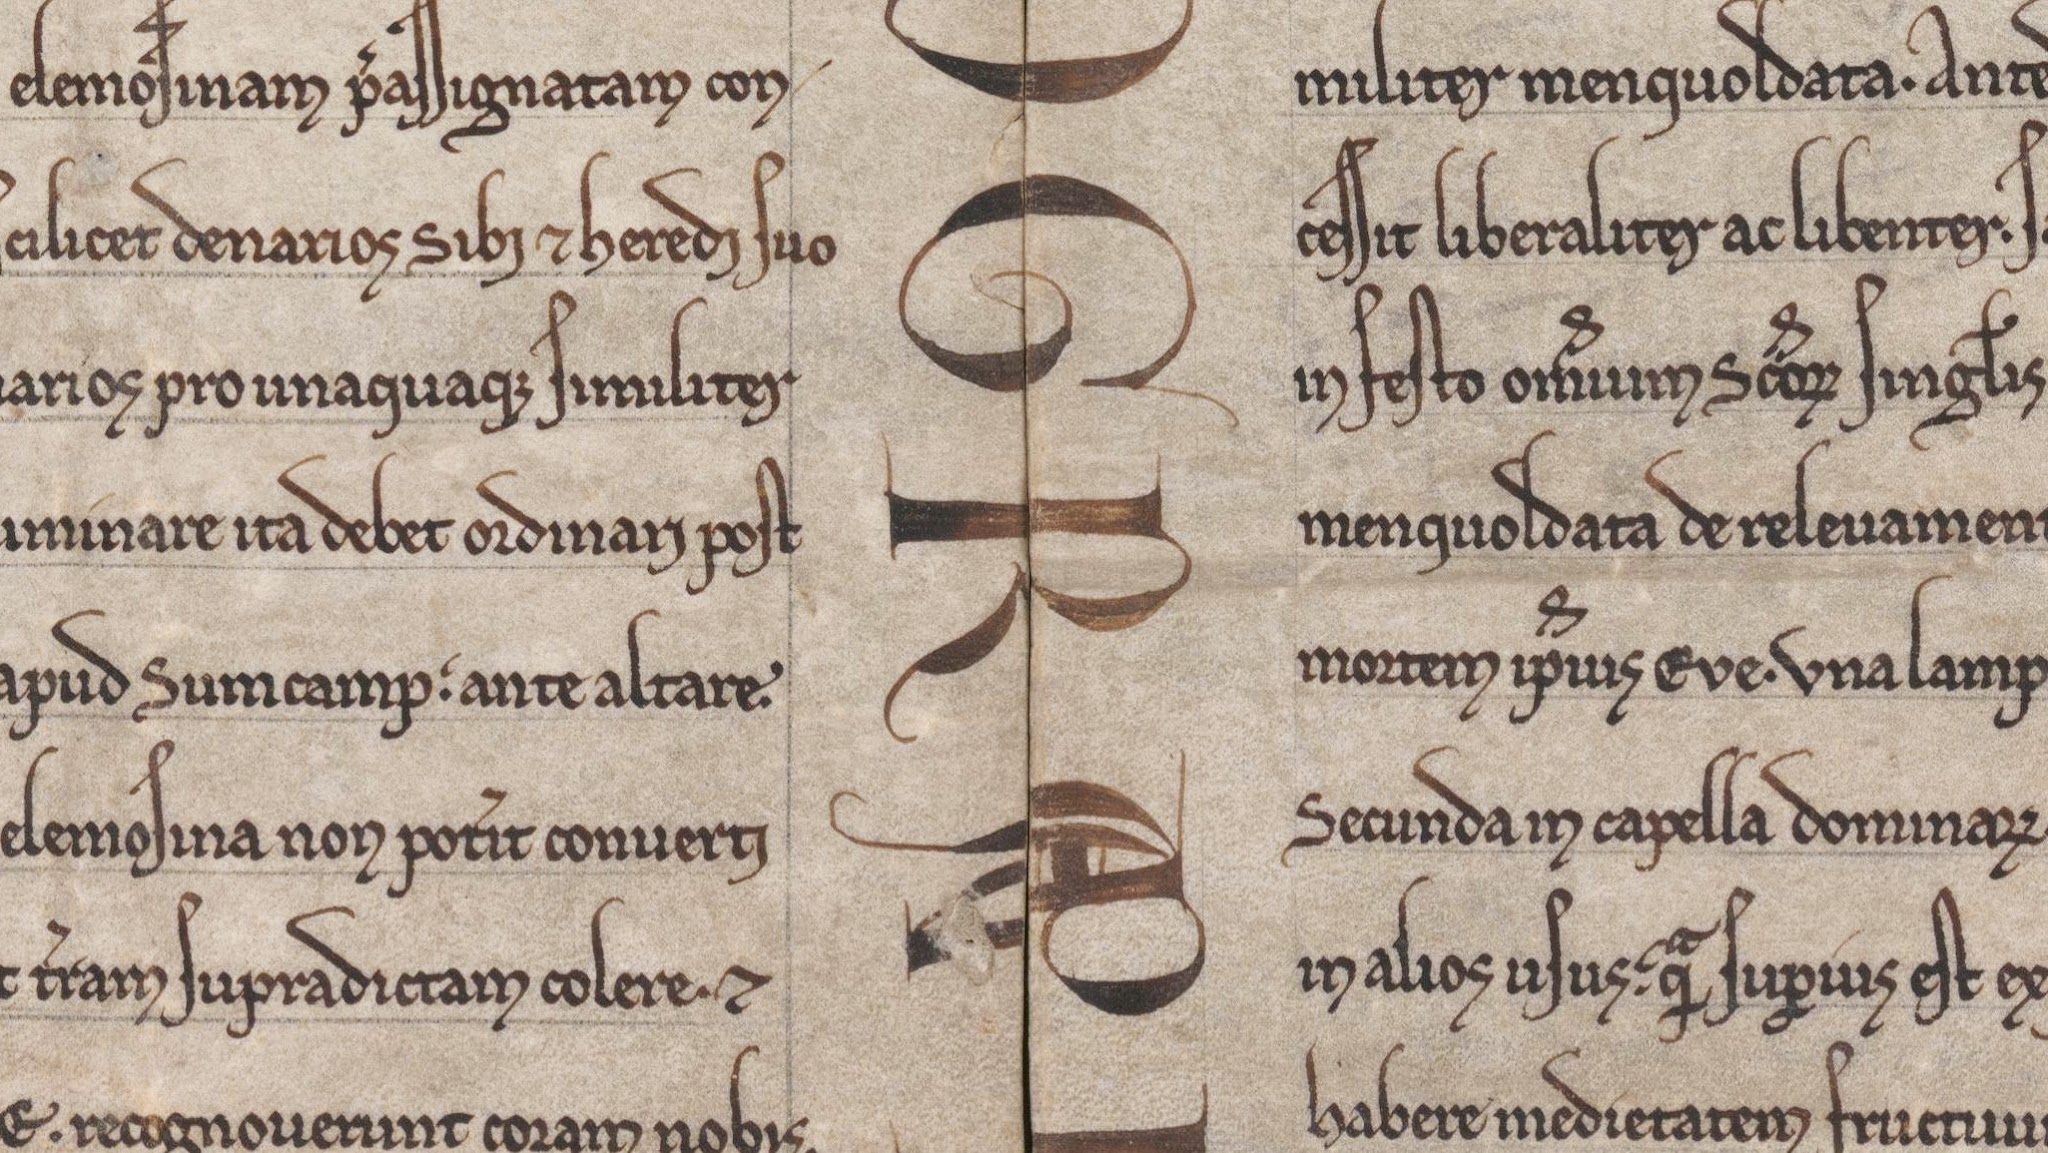 elemosinam p̄assignatam con
scilicet denarios sibi ⁊ heredi suo
narios pro unaquaqꝫ similiter
luminare ita debet ordinari post
apud Sumcamp. ante altare.
elemosina non pot̄it conuerti
t̄ram supradictam colere. ⁊
E. recognouerunt coram nobis.
militer menquoldata. Ante
cessit liberaliter ac libenter.
in festo om̄ium Sc̄oꝝ singl̄is
menquoldata de releuament
mortem ip̄ius Eve. Vna lamp
Secunda in capella dominaꝝ
in alios usus. qͣ suꝑius est ex
habere medietatem fructuu